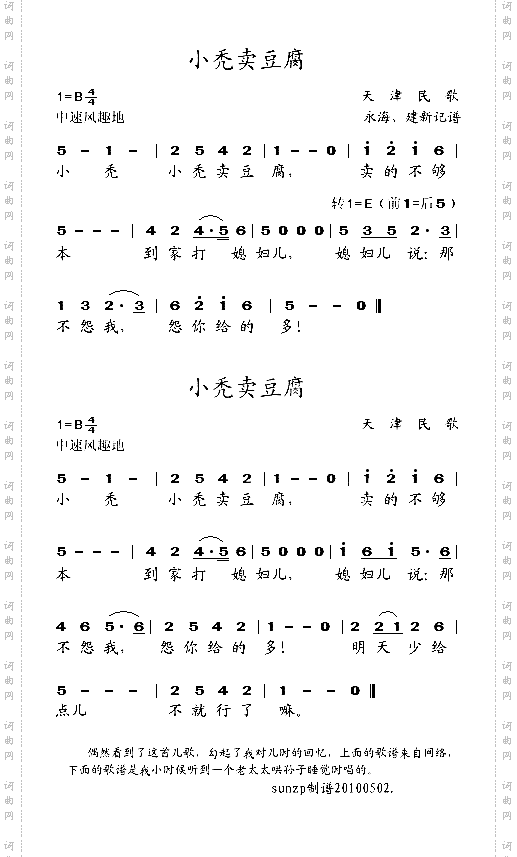 小秃卖豆腐
1=B 4/4 天津民歌
中速风趣地 永海、建新记谱
5 - 1 - | 2 5 4 2 | 1 - - 0 | i 2̇ i 6 |
小 秃 小秃卖豆腐, 卖的不够
转1=E（前1=后5）
5 - - - | 4 2 4·5 6 | 5 0 0 0 | 5 3 5 2·3 |
本 到家打 媳妇儿, 媳妇儿 说:那
1 3 2·3 | 6 2̇ i 6 | 5 - - 0 ‖
不怨我, 怨你给的 多!
小秃卖豆腐
1=B 4/4 天津民歌
中速风趣地
5 - 1 - | 2 5 4 2 | 1 - - 0 | i 2̇ i 6 |
小 秃 小秃卖豆腐, 卖的不够
5 - - - | 4 2 4·5 6 | 5 0 0 0 | i 6 i 5·6 |
本 到家打 媳妇儿, 媳妇儿 说:那
4 6 5·6 | 2 5 4 2 | 1 - - 0 | 2 2 1 2 |
不怨我, 怨你给的 多! 明天少给
5 - - - | 2 5 4 2 | 1 - - 0 ‖
点儿 不就行了 嘛。
偶然看到了这首儿歌，勾起了我对儿时的回忆，上面的歌谱来自网络，
下面的歌谱是我小时候听到一个老太太哄孙子睡觉时唱的。
sunzp制谱20100502.
词曲网